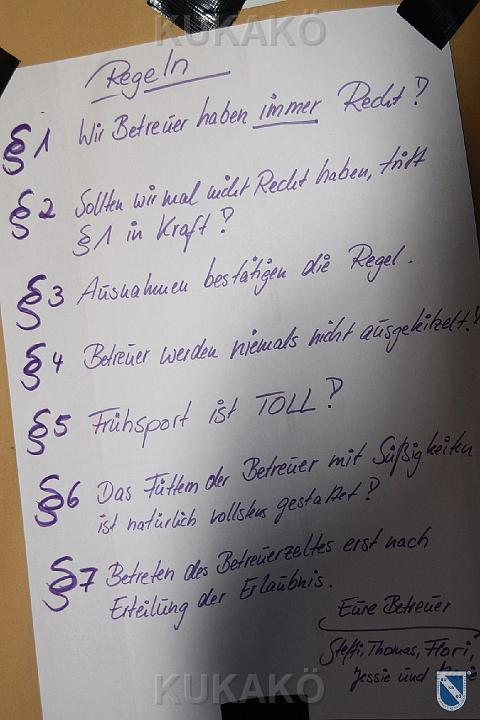 KUKAKÖ
Regeln
§1 Wir Betreuer haben immer Recht!
§2 Sollten wir mal nicht Recht haben, tritt
§1 in Kraft!
§3 Ausnahmen bestätigen die Regel.
§4 Betreuer werden niemals nicht ausgekitzelt!
§5 Frühsport ist TOLL!
§6 Das Füttern der Betreuer mit Süßigkeiten
ist natürlich vollstens gestattet!
§7 Betreten des Betreuerzeltes erst nach
Erteilung der Erlaubnis.
Eure Betreuer
Steffi, Thomas, Flori,
Jessie und
KUKAKÖ